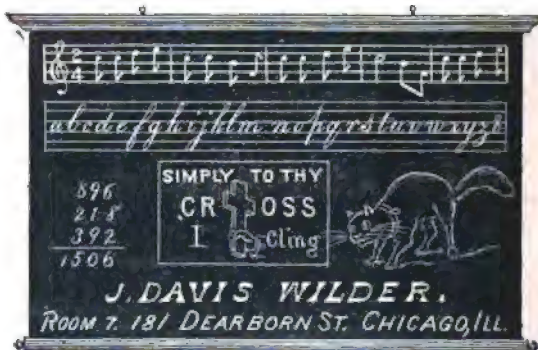 2
4
abcdefghijklmnopqrstuvwxyz&
896
218
392
1506
SIMPLY TO THY
CROSS
I Cling
J. DAVIS WILDER.
ROOM 7. 181 DEARBORN ST. CHICAGO, ILL.